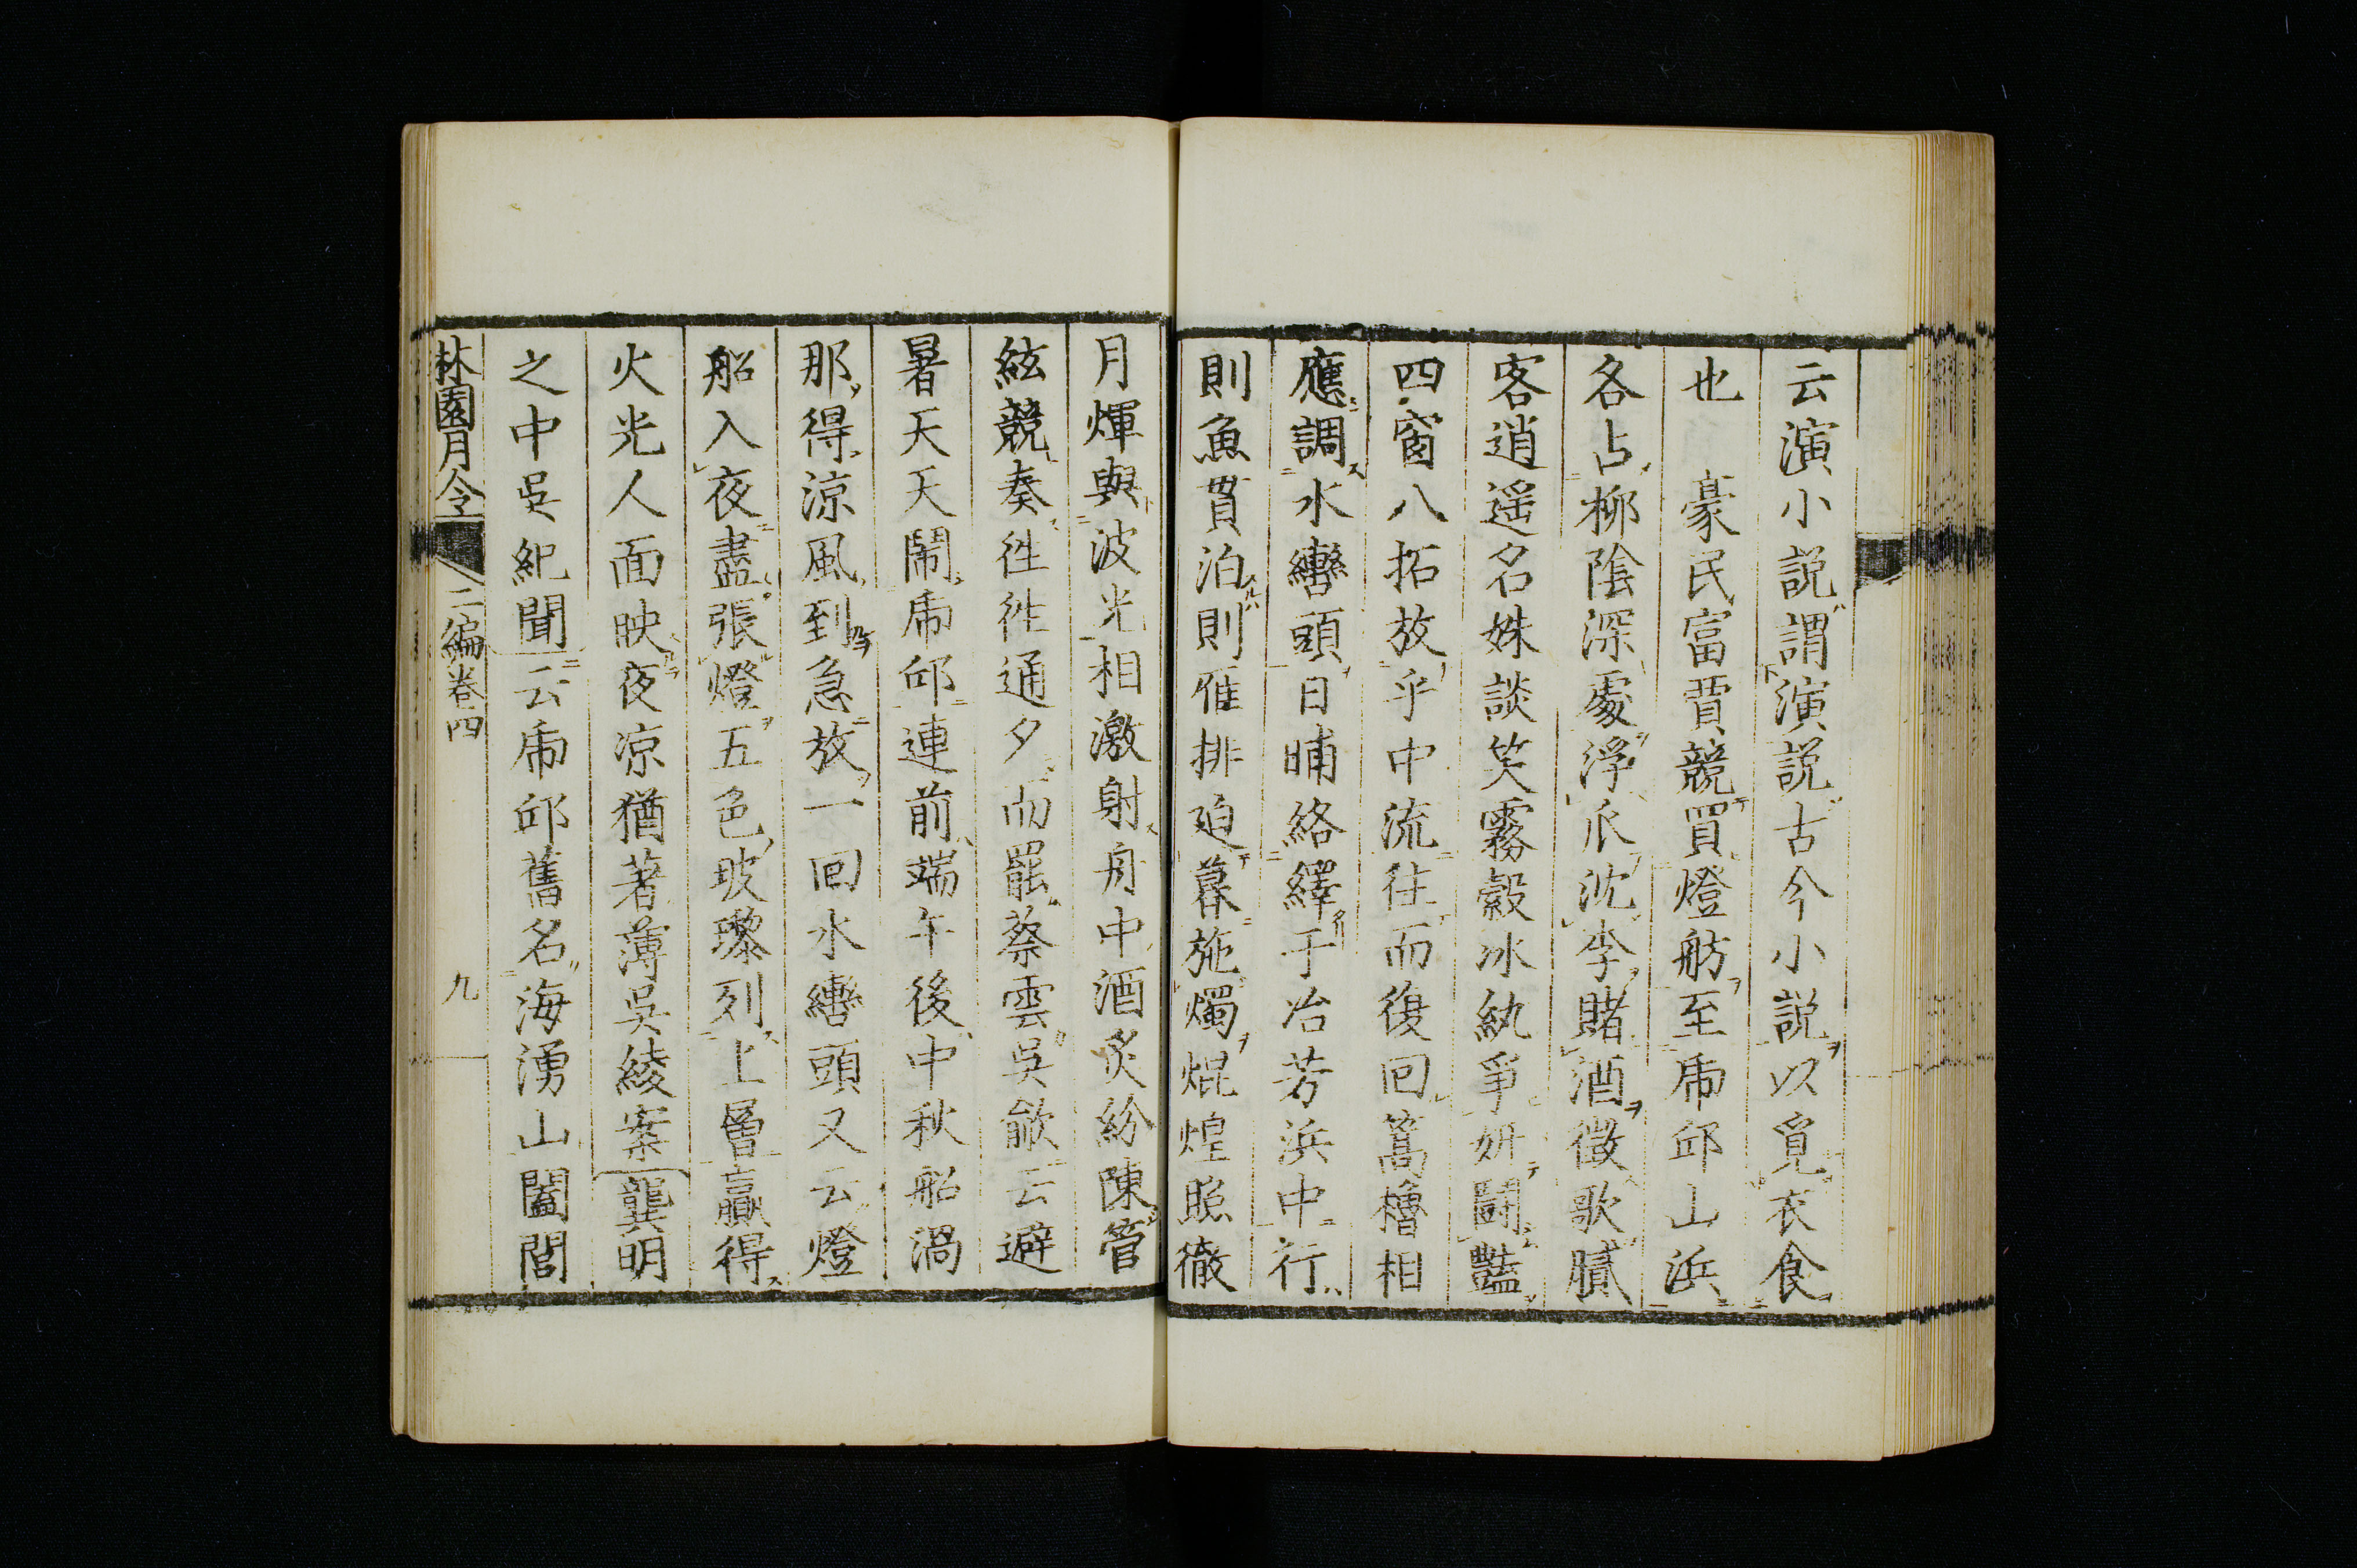 云演小説謂演説古今小説以覓衣食
也　豪民富賈競買燈舫至虎邱山浜
各占柳陰深處浮瓜沈李賭酒徵歌膩
客逍遥名姝談笑霧縠冰紈爭妍鬪豔
四窗八拓放乎中流往而復回篙櫓相
應調水轡頭日晡絡繹于冶芳浜中行
則魚貫泊則雁排迫暮施燭焜煌照徹
月輝與波光相激射舟中酒炙紛陳管
絃競奏徃徃通夕而罷蔡雲吳歈云避
暑天天鬧虎邱連前端午後中秋船渦
那得涼風到急放一回水轡頭又云燈
船入夜盡張燈五色玻瓈列上層贏得
火光人面映夜凉猶著薄吳綾案龔明
之中吳紀聞云虎邱舊名海湧山闔閭
林園月令　二編卷四　九